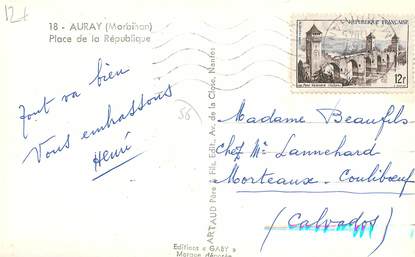 12f
18 - AURAY (Morbihan)
Place de la République
Tout va bien
Vous embrassons
Henri
56
ARTAUD Père & Fils, Edit., Av. de la Close, Nantes
Editions « GABY »
Marque déposée
RÉPUBLIQUE FRANÇAISE
12f
Madame Beaufils
chez Mr Lannehard
Morteaux-Coulibœuf
(Calvados)